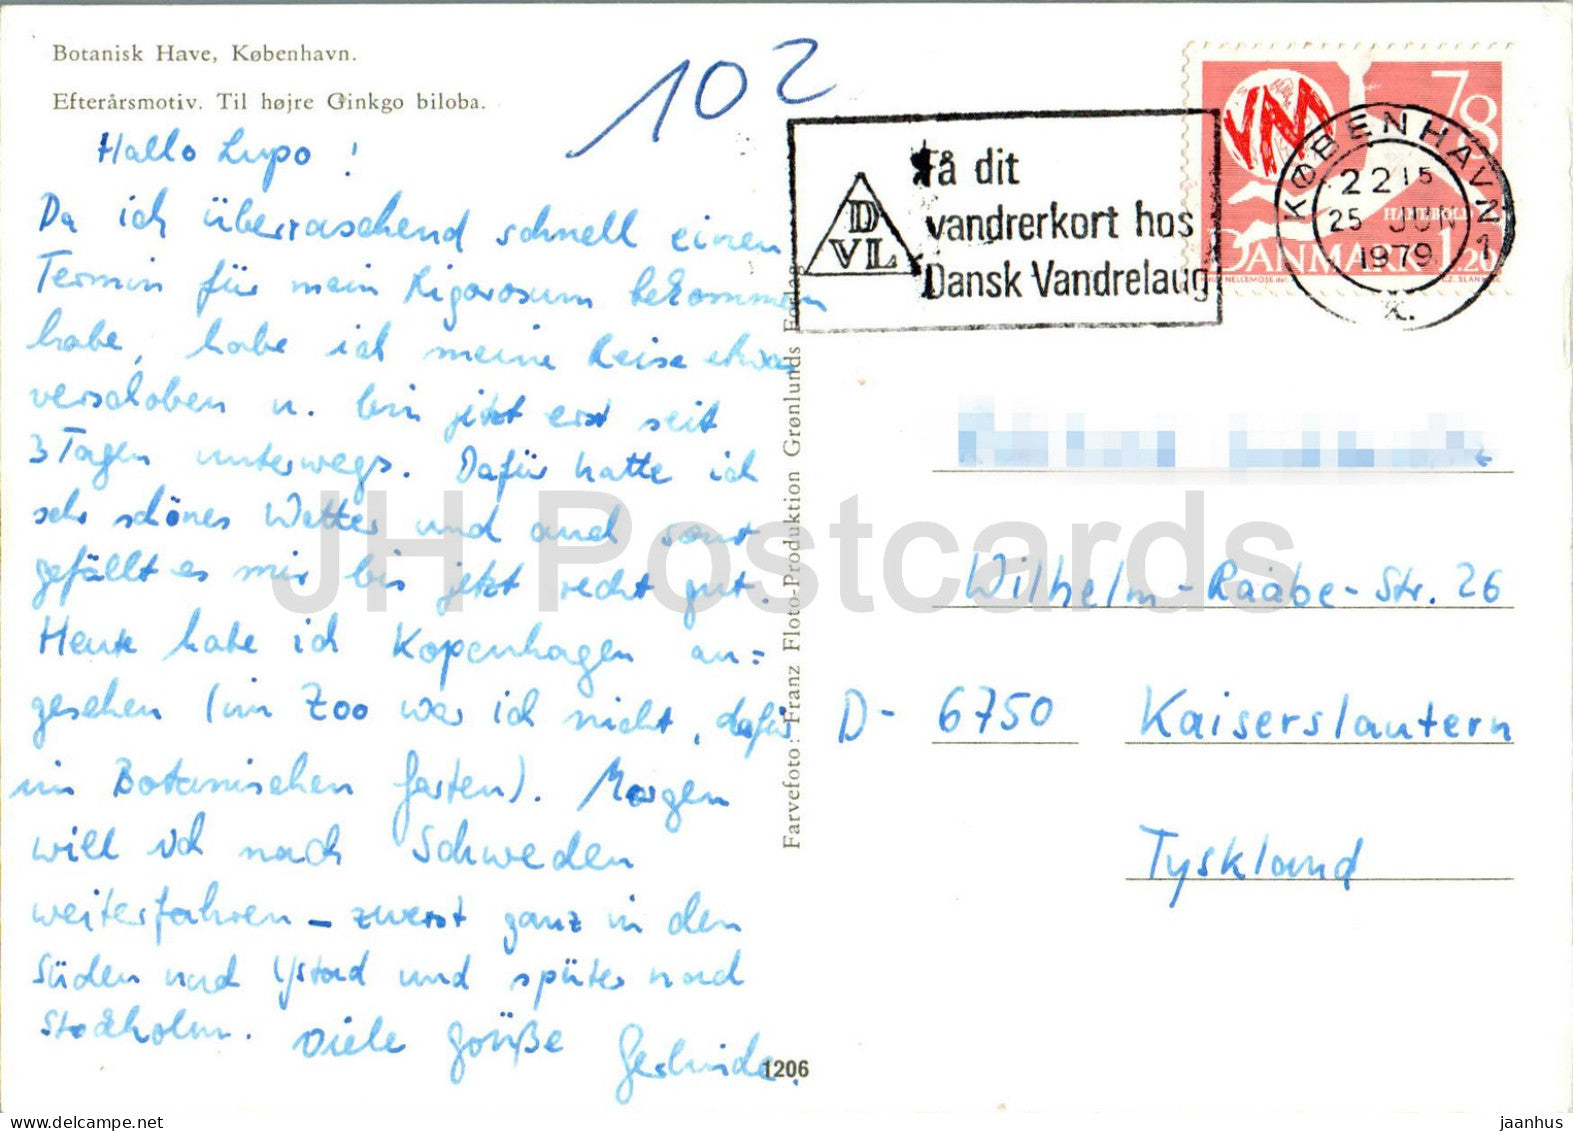 Botanisk Have, København.
Efterårsmotiv. Til højre Ginkgo biloba.
102
Hallo Lupo !
Da ich überraschend schnell einen
Termin für mein Rigorosum bekommen
habe, habe ich meine Reise etwas
verschoben u. bin jetzt erst seit
3 Tagen unterwegs. Dafür hatte ich
sehr schönes Wetter und auch sonst
gefällt es mir bis jetzt recht gut.
Heute habe ich Kopenhagen an=
gesehen (im Zoo war ich nicht, dafür
im Botanischen Garten). Morgen
will ich nach Schweden
weiterfahren – zuerst ganz in den
Süden nach Ystad und später nach
Stockholm. Viele Grüße Gerlinde.
1206
Farvefoto: Franz Floto-Produktion Grønlunds Forlag
DVL
Få dit
vandrerkort hos
Dansk Vandrelaug
VM
78
HÅNDBOLD
DANMARK 1.20
CZ. SLANIA SC
KØBENHAVN
22 15
25 JUN
1979
1
K.
Wilhelm-Raabe-Str. 26
D- 6750 Kaiserslautern
Tyskland
JH Postcards
jaanhus